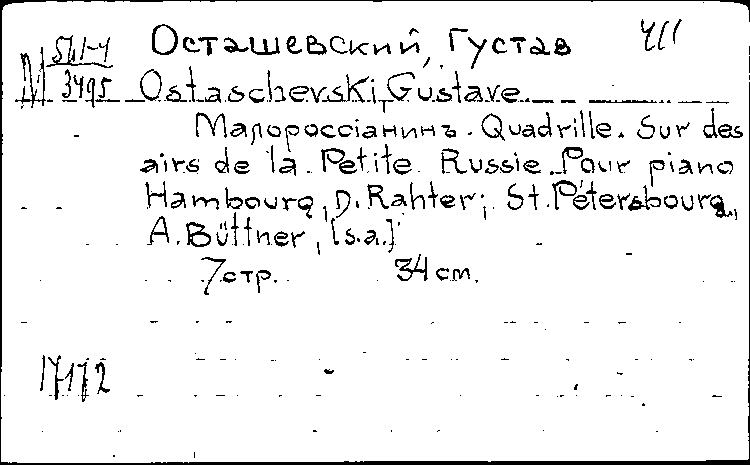 Осташевский, Густав
3495 Ostaschevski, Gustave
Малороссіанинъ. Quadrille. Sur des
airs de la Petite Russie. Pour piano
Hambourg, D. Rahter; St. Pétersbourg,
A. Büttner, [s.a.]
7 стр. 34 см.
17172